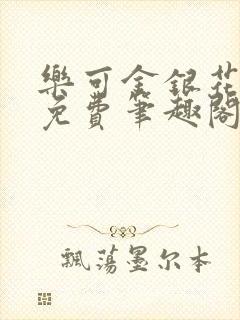 樂可金銀花
免費筆趣閣
飄蕩墨尔本